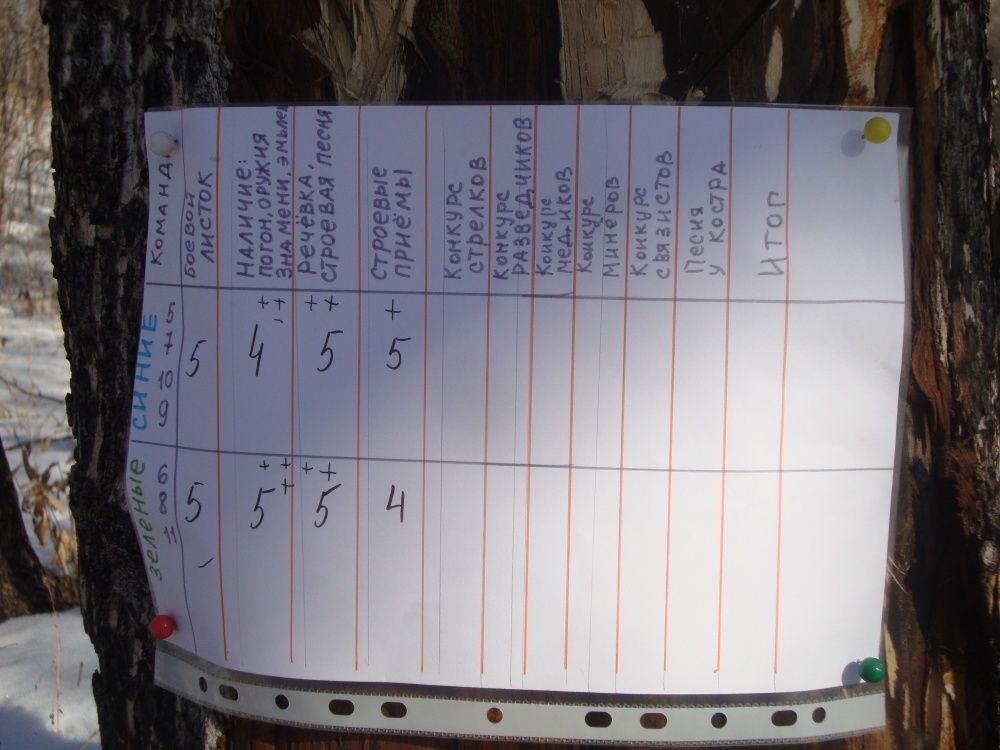 КОМАНДА
БОЕВОЙ
ЛИСТОК
НАЛИЧИЕ:
ПОГОН, ОРУЖИЯ
ЗНАМЕНИ,
РЕЧЁВКА,
СТРОЕВАЯ ПЕСНЯ
СТРОЕВЫЕ
ПРИЁМЫ
КОНКУРС
СТРЕЛКОВ
КОНКУРС
РАЗВЕДЧИКОВ
КОНКУРС
МЕДИКОВ
КОНКУРС
МИНЁРОВ
КОНКУРС
СВЯЗИСТОВ
ПЕСНЯ
У КОСТРА
ИТОГ
СИНИЕ
9 10 7 5
5 4 + ++ 5 ++ 5 +
зеленые
11 8 6
5 5 + ++ 5 ++ 4